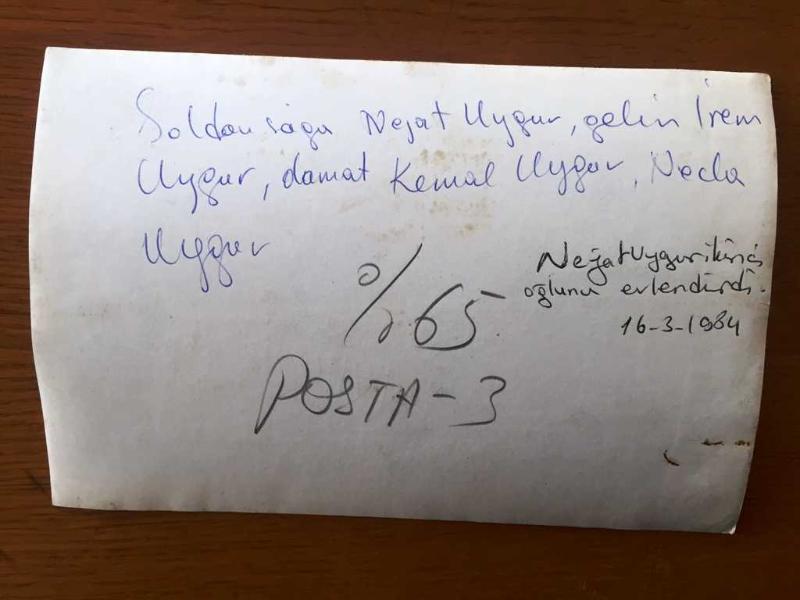 Soldan sağa Nejat Uygur, gelin İrem
Uygur, damat Kemal Uygur, Necla
Uygur
Nejat Uygur ikinci
oğlunu evlendirdi.
16-3-1984
%65
POSTA-3